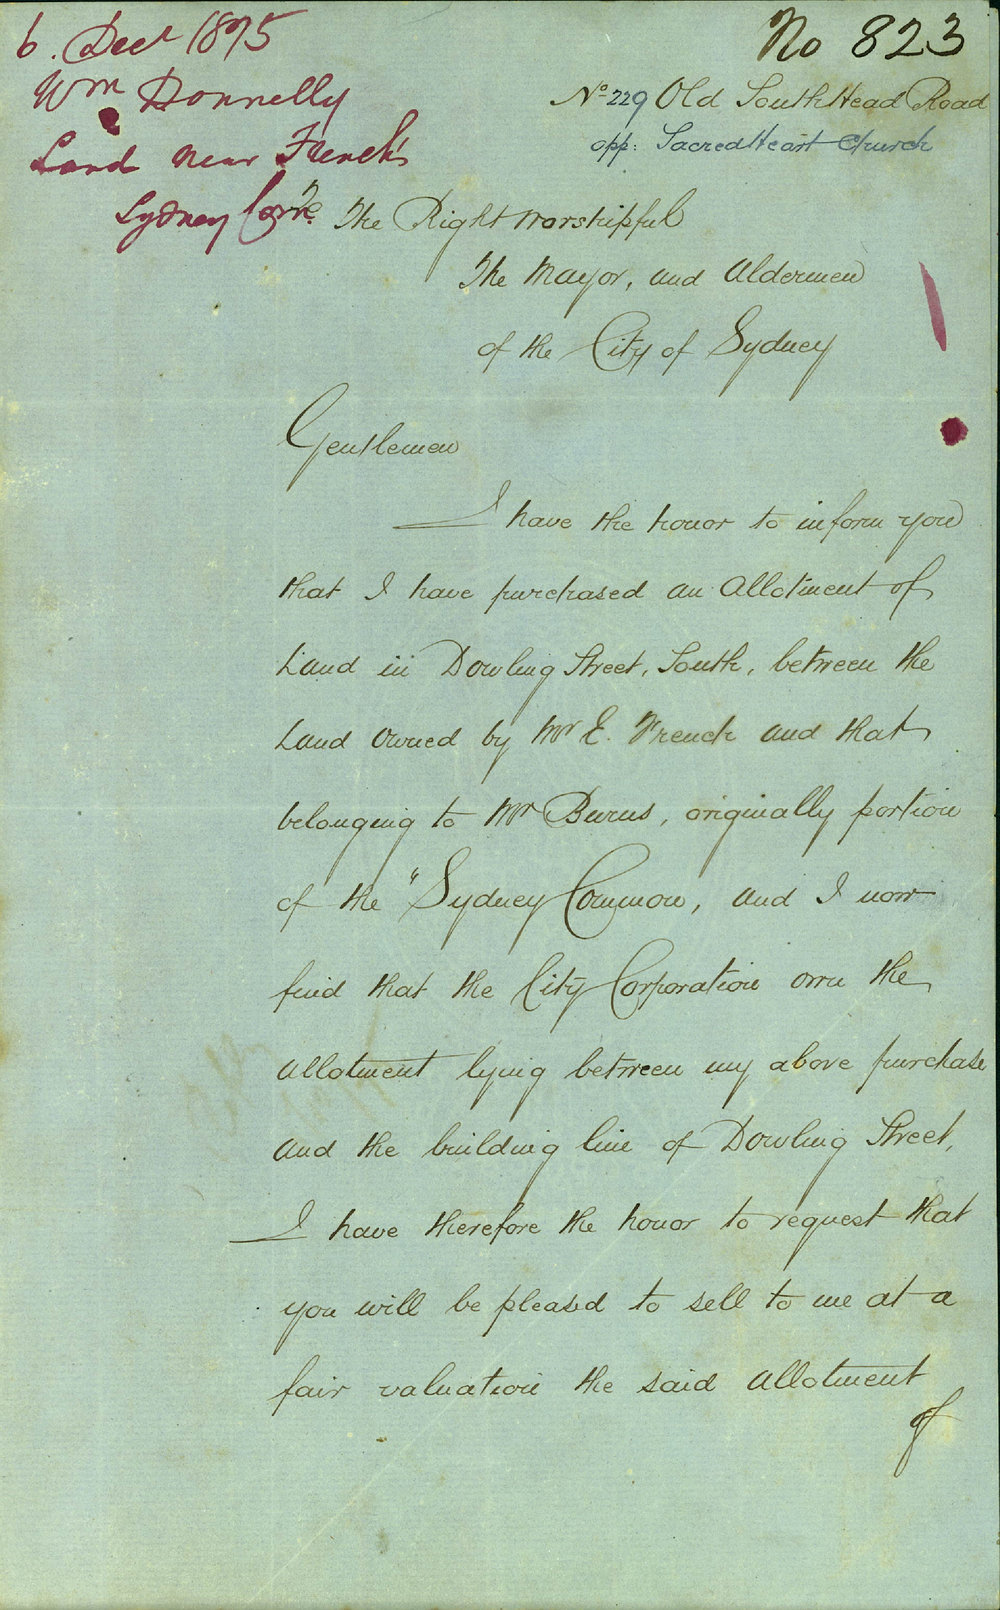 6. Decr 1875
Wm Donnelly
Land near French's
Sydney Comn.
No 823
No 229 Old South Head Road
opp: Sacred Heart Church
To The Right Worshipful
The Mayor, and Aldermen
of the City of Sydney
Gentlemen
I have the honor to inform you
that I have purchased an Allotment of
Land in Dowling Street, South, between the
Land owned by Mr E. French and that
belonging to Mr Burns, originally portion
of the "Sydney Common, and I now
find that the City Corporation own the
Allotment lying between my above purchase
and the building line of Dowling Street,
I have therefore the honor to request that
you will be pleased to sell to me at a
fair valuation the said Allotment
of